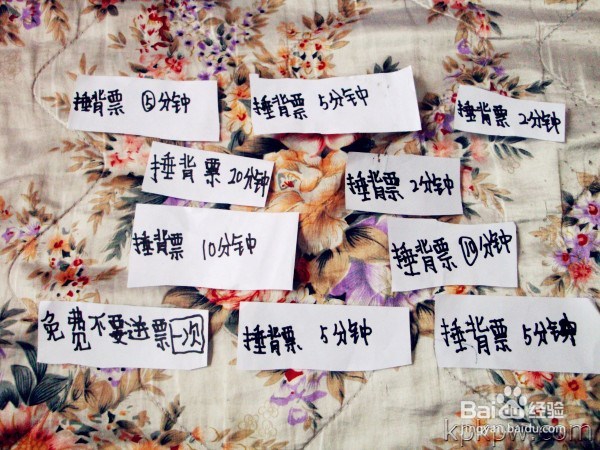 捶背票 ⑤分钟
捶背票 5分钟
捶背票 2分钟
捶背票 20分钟
捶背票 2分钟
捶背票 10分钟
捶背票 ⑩分钟
免费不要送票一次
捶背票 5分钟
捶背票 5分钟
Baidu经验
jingyan.baidu.com
kpkpw.com